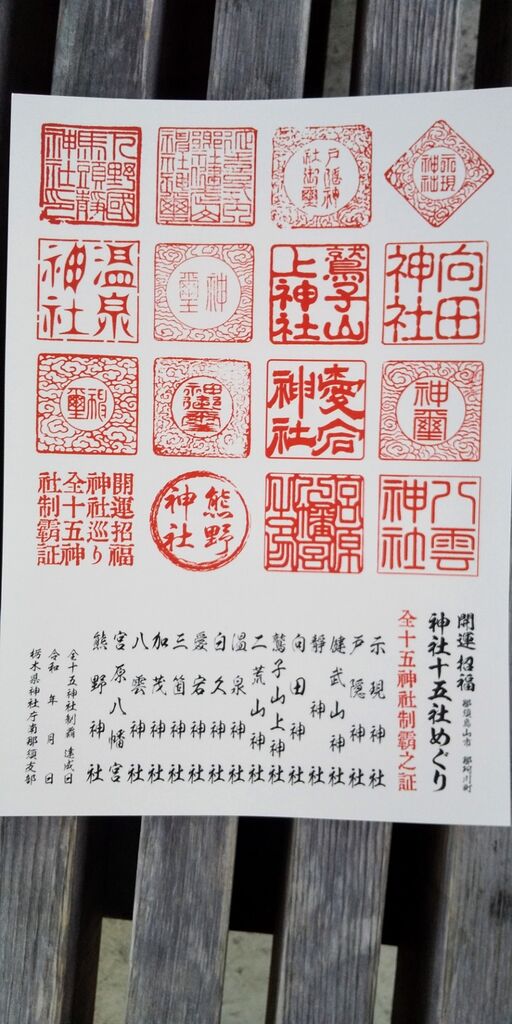 示現
神社
戸隠神
社御璽
下野國
馬頭靜
神社印
向田
神社
鷲子山
上神社
神
璽
温泉
神社
神
璽
愛宕
神社
八雲
神社
宮原
八幡宮
熊野
神社
開運招福
神社巡り
全十五神
社制覇証
開運招福 那須烏山市 那珂川町
神社十五社めぐり
全十五神社制覇之証
示現神社
戸隠神社
健武山神社
静神社
向田神社
鷲子山上神社
二荒山神社
温泉神社
白久神社
愛宕神社
三箇神社
加茂神社
八雲神社
宮原八幡宮
熊野神社
全十五神社制覇 達成日
令和 年 月 日
栃木県神社庁南那須支部